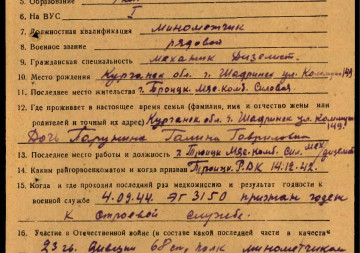 5. Образование
6. На ВУС I
7. Должностная квалификация минометчик
8. Военное звание рядовой
9. Гражданская специальность механик дизелист.
10. Место рождения Курганск обл. г. Шадринск ул. Коммуны 149
11. Последнее место жительства г. Троицк.
12. Где проживает в настоящее время семья (фамилия, имя и отчество жены или
родителей и точный их адрес) Курганск обл. г. Шадринск ул. Коммуны
149 Дочь Галина Гавриловна
13. Последнее место работы и должность г. Троицк
14. Каким райгорвоенкоматом и когда призван Троицк. РВК 14.12.42.
15. Когда и где проходил последний раз медкомиссию и результат годности к
военной службе 4.09.44. ЭГ 3150 признан годен
к строевой службе.
16. Участие в Отечественной войне (в составе какой последней части в качестве
23 гв. дивизии 68 полк минометчиком